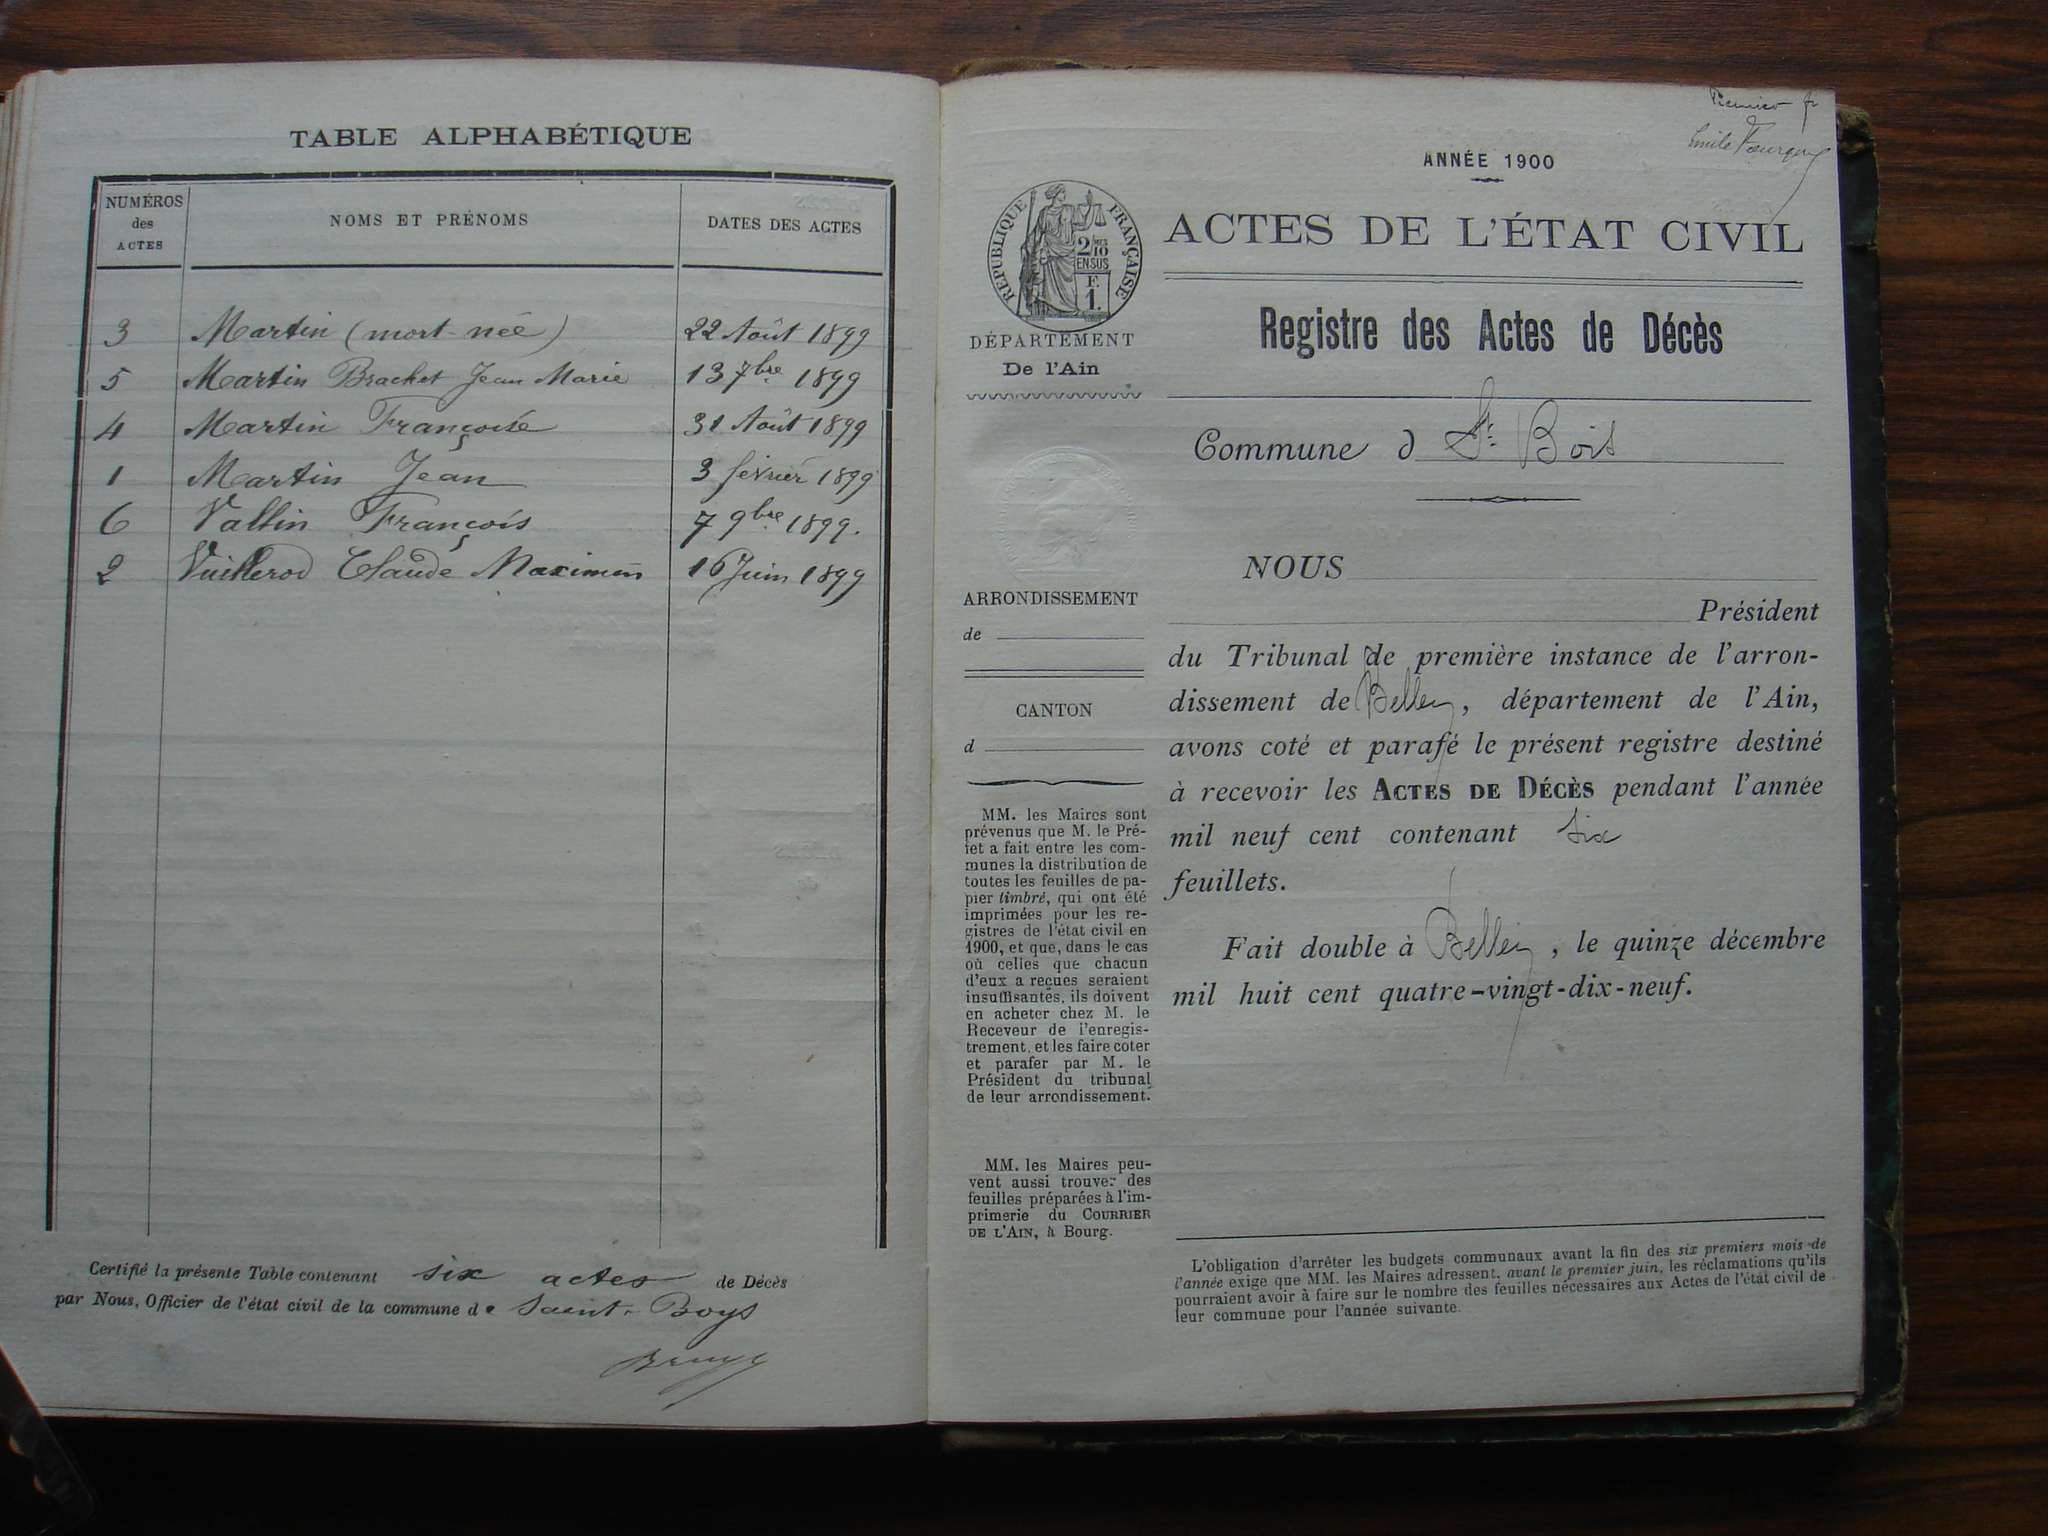 TABLE ALPHABÉTIQUE
NUMÉROS
des
ACTES
NOMS ET PRÉNOMS
DATES DES ACTES
3 Martin (mort-née) 22 Août 1899
5 Martin Brachet Jean Marie 13 7bre 1899
4 Martin Françoise 31 Août 1899
1 Martin Jean 3 février 1899
6 Vallin François 7 9bre 1899.
2 Vuillerod Claude Maximin 16 Juin 1899
Certifié la présente Table contenant six actes de Décès
par Nous, Officier de l'état civil de la commune de Saint-Boys
Premier
Emile
ANNÉE 1900
RÉPUBLIQUE FRANÇAISE
2/10
EN SUS
F.
1.
ACTES DE L'ÉTAT CIVIL
DÉPARTEMENT
De l'Ain
Registre des Actes de Décès
Commune d St Bois
ARRONDISSEMENT
de
CANTON
d
MM. les Maires sont
prévenus que M. le Pré-
fet a fait entre les com-
munes la distribution de
toutes les feuilles de pa-
pier timbré, qui ont été
imprimées pour les re-
gistres de l'état civil en
1900, et que, dans le cas
où celles que chacun
d'eux a reçues seraient
insuffisantes, ils doivent
en acheter chez M. le
Receveur de l'enregis-
trement, et les faire coter
et parafer par M. le
Président du tribunal
de leur arrondissement.
MM. les Maires peu-
vent aussi trouver des
feuilles préparées à l'im-
primerie du COURRIER
DE L'AIN, à Bourg.
NOUS
Président
du Tribunal de première instance de l'arron-
dissement de Belley, département de l'Ain,
avons coté et parafé le présent registre destiné
à recevoir les ACTES DE DÉCÈS pendant l'année
mil neuf cent contenant six
feuillets.
Fait double à Belley, le quinze décembre
mil huit cent quatre-vingt-dix-neuf.
L'obligation d'arrêter les budgets communaux avant la fin des six premiers mois de
l'année exige que MM. les Maires adressent, avant le premier juin, les réclamations qu'ils
pourraient avoir à faire sur le nombre des feuilles nécessaires aux Actes de l'état civil de
leur commune pour l'année suivante.